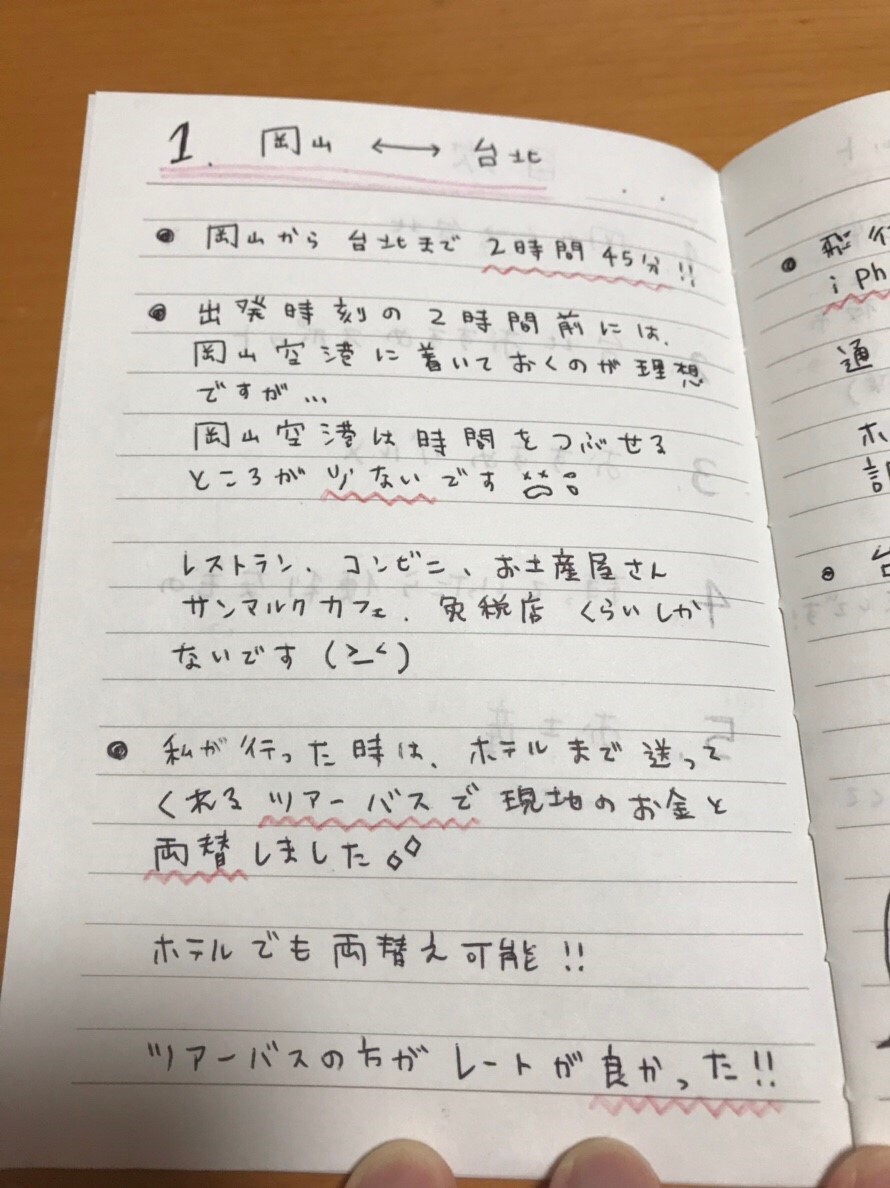 1. 岡山 ⟷ 台北
● 岡山から 台北まで 2時間45分!!
● 出発時刻の2時間前には、
岡山空港に着いておくのが理想
ですが...
岡山空港は時間をつぶせる
ところが 少ないです
レストラン、コンビニ、お土産屋さん
サンマルクカフェ、免税店 くらいしか
ないです (>_<)
● 私が行った時は、ホテルまで送って
くれる ツアーバスで 現地のお金と
両替しました
ホテルでも両替え可能!!
ツアーバスの方が レートが良かった!!
● 飛行
iPh
通
ホ
● 台